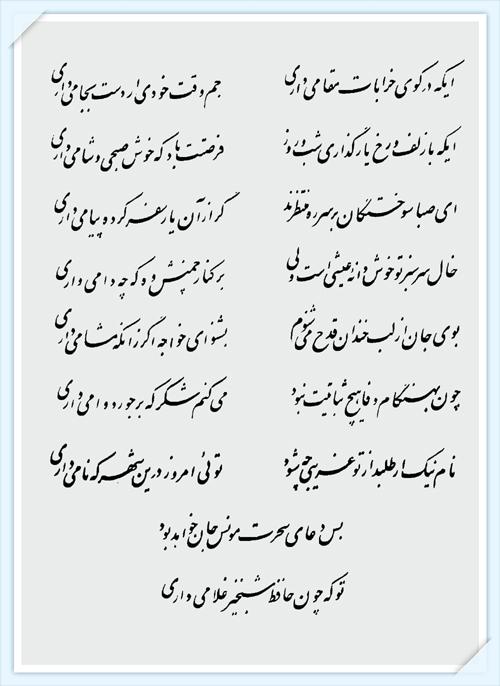 ایکه در کوی خرابات مقامی داری جم وقت خودی ار دست بجامی داری
ایکه با زلف و رخ یار گذاری شب و روز فرصتت باد که خوش صبحی و شامی داری
ای صبا سوختگان بر سر ره منتظرند گر از آن یار سفر کرده پیامی داری
خال سرسبز تو خوش دانه عیشی است ولی بر کنار چمنش وه که چه دامی داری
بوی جان از لب خندان قدح می شنوم بشنو ای خواجه اگر زانکه مشامی داری
چون بهنگام وفا هیچ ثباتیت نبود می کنم شکر که بر جور دوامی داری
نام نیک ار طلبد از تو غریبی چه شود توئی امروز درین شهر که نامی داری
بس دعای سحرت مونس جان خواهد بود
تو که چون حافظ شبخیز غلامی داری